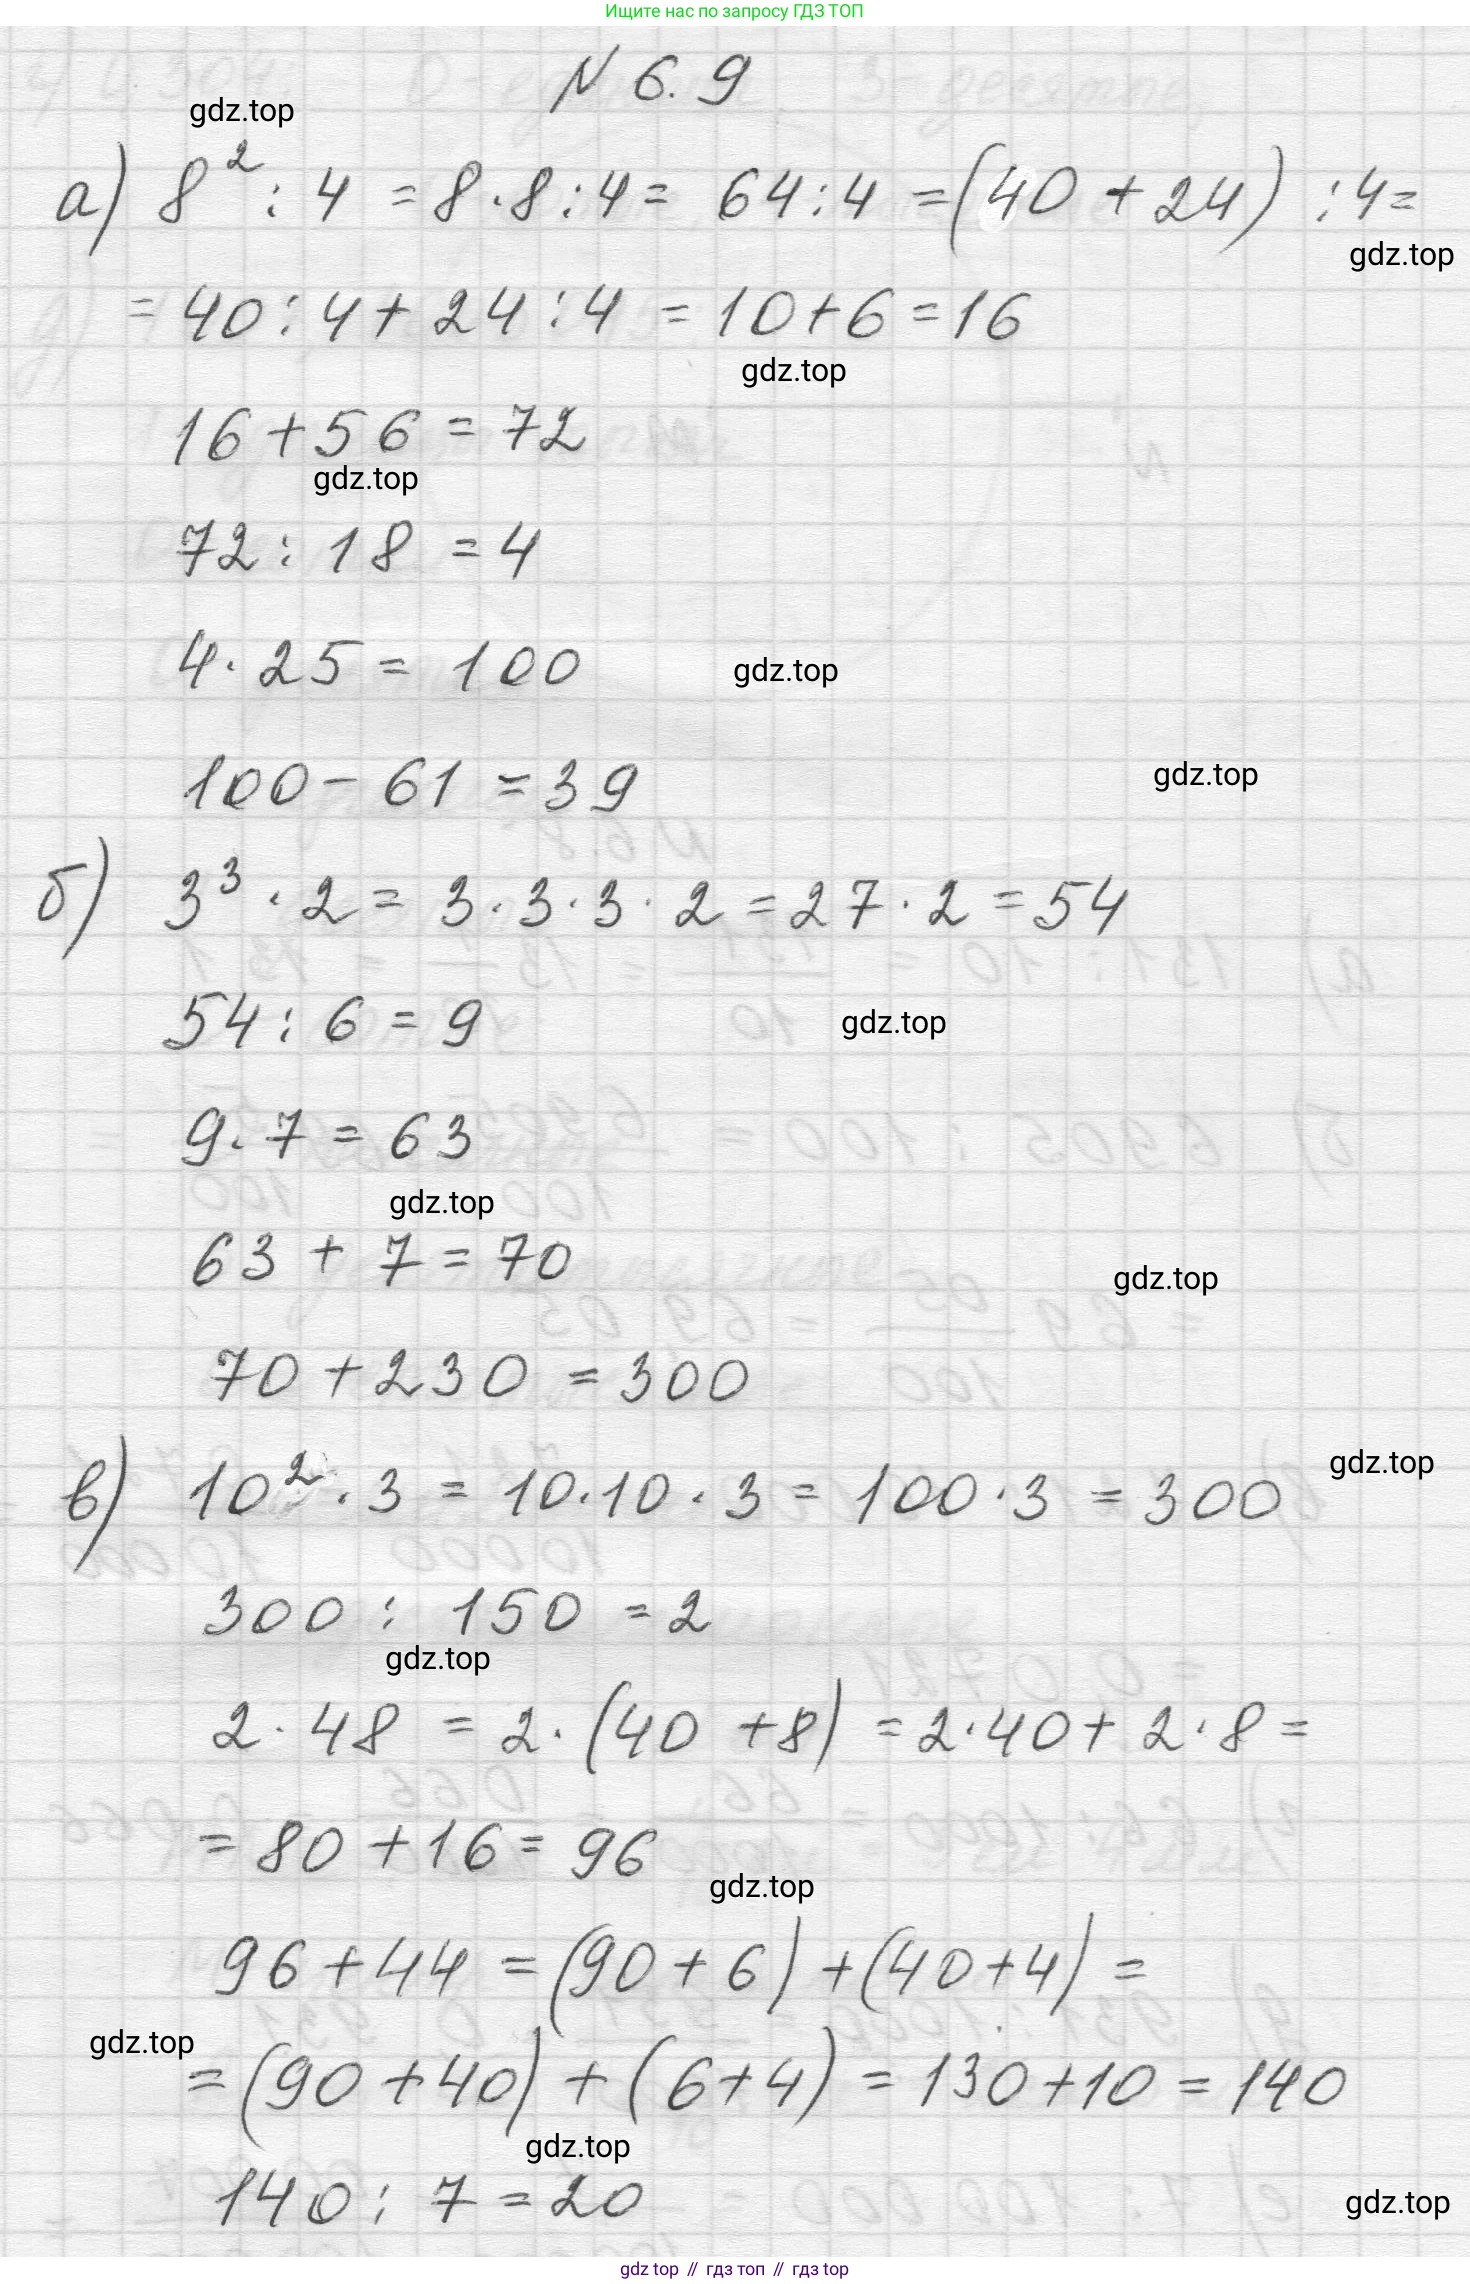 Ищите нас по запросу ГДЗ ТОП
N 6.9
gdz.top
а) 8² : 4 = 8·8:4 = 64:4 = (40 + 24) : 4 =
gdz.top
= 40:4 + 24:4 = 10+6 = 16
gdz.top
16 + 56 = 72
gdz.top
72 : 18 = 4
4 · 25 = 100
gdz.top
100 - 61 = 39
gdz.top
б) 3³ · 2 = 3 · 3 · 3 · 2 = 27 · 2 = 54
54 : 6 = 9
gdz.top
9 · 7 = 63
gdz.top
63 + 7 = 70
gdz.top
70 + 230 = 300
gdz.top
в) 10² · 3 = 10·10 · 3 = 100 · 3 = 300
300 : 150 = 2
gdz.top
2 · 48 = 2 · (40 + 8) = 2·40 + 2·8 =
= 80 + 16 = 96
gdz.top
96 + 44 = (90 + 6) + (40+4) =
gdz.top
= (90 + 40) + (6+4) = 130 + 10 = 140
gdz.top
140 : 7 = 20
gdz.top
gdz top // гдз топ // гдз top